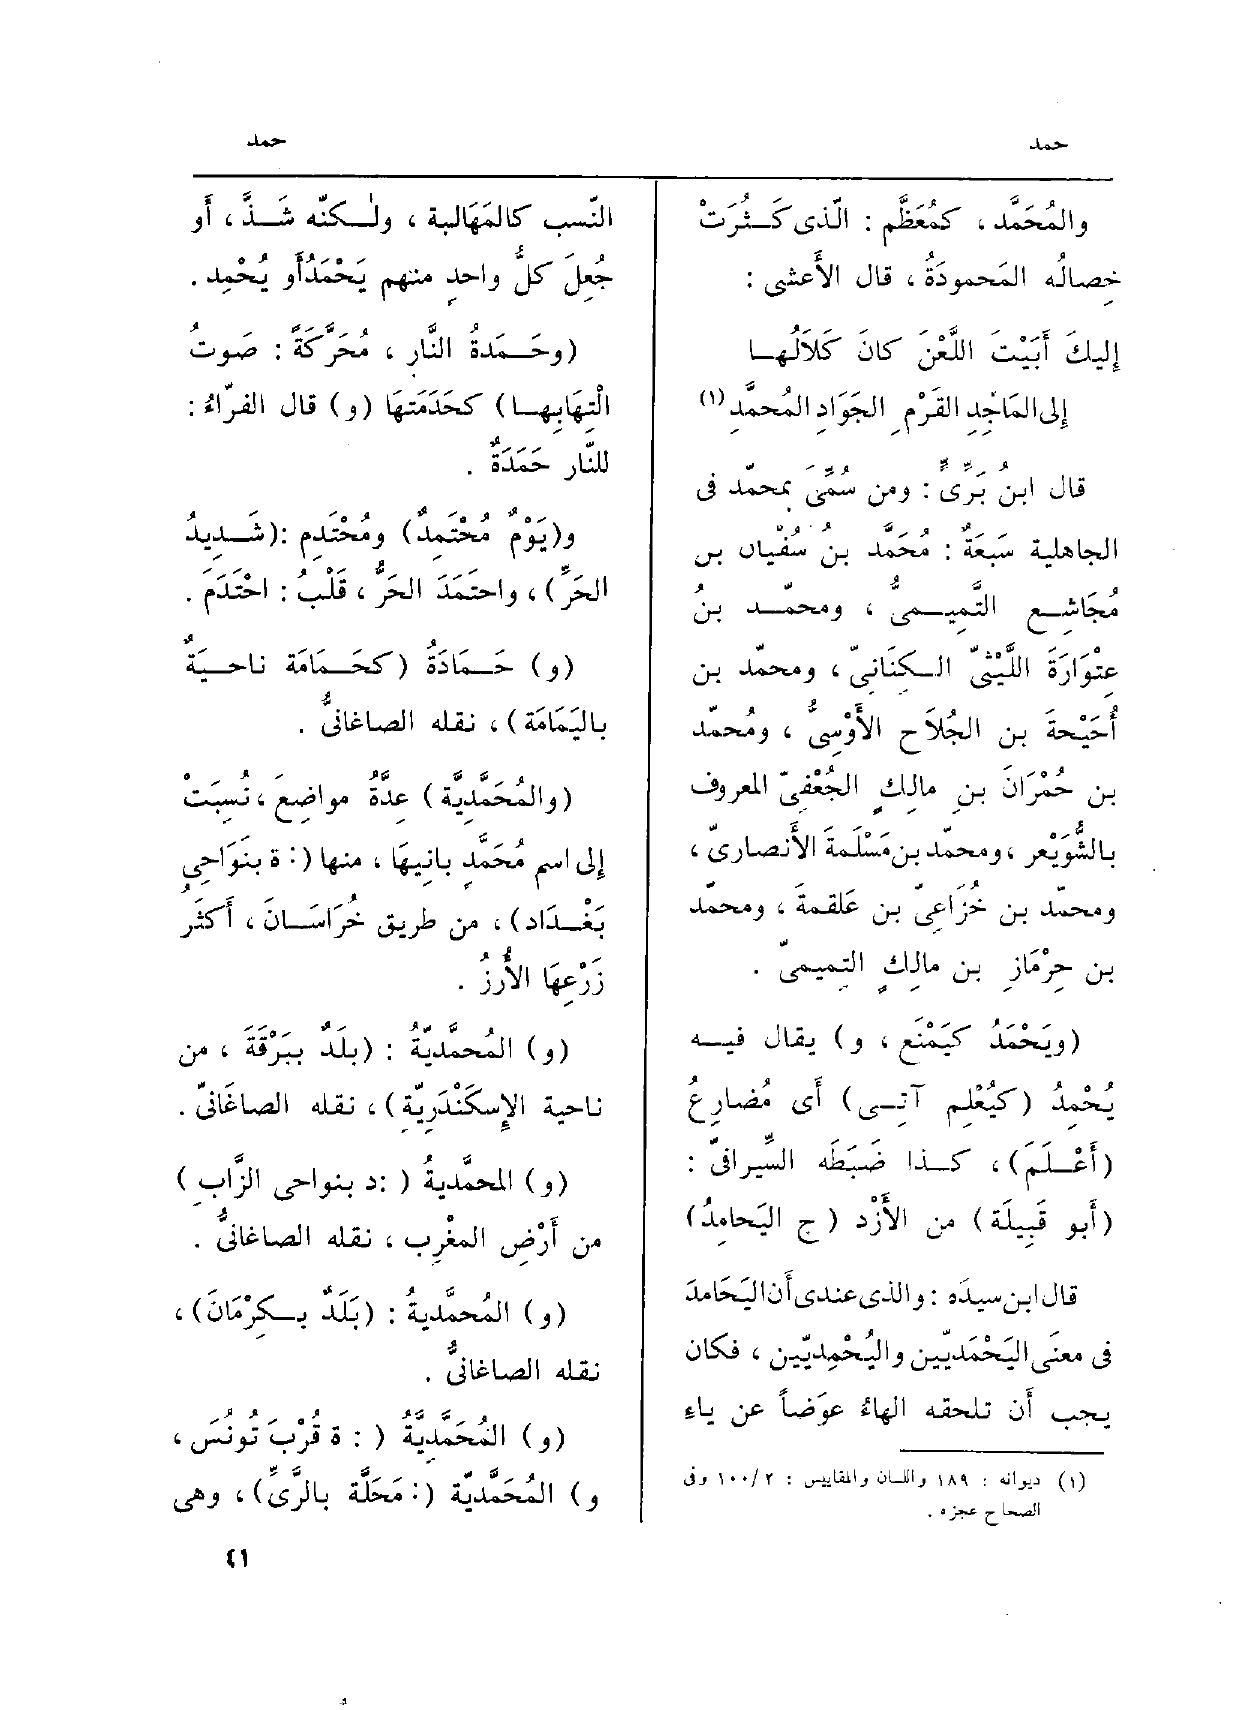 حمد
حمد
والمُحَمَّد ، كمُعَظَّمٍ : الّذى كَـثُرَتْ
خِصالُه المَحمودَةُ ، قال الأَعشى :
إليكَ أَبَيْتَ اللَّعْنَ كانَ كَلاَلُهـا
إلى المَاجِدِ القَرْمِ الجَوَادِ المُحمَّدِ (١)
قال ابنُ بَرِّىٍّ : ومن سُمِّىَ بمحمّد فى
الجاهلية سَبعَةٌ : مُحمَّد بن سُفْيان بن
مُجَاشِـع التَّمِيـمىُّ ، ومحمّـد بنُ
عِتْوَارَةَ اللَّيْثىّ الـكِنَانىّ ، ومحمّد بن
أُحَيْحةَ بن الجُلَاحِ الأَوْسِىُّ ، ومُحمّد
بن حُمْرَانَ بنِ مالِكٍ الجُعْفِىّ المعروف
بالشُّوَيْعر ، ومحمّد بن مَسْلَمةَ الأَنصارىّ ،
ومحمّد بن خُزَاعِىّ بن عَلقمةَ ، ومحمّد
بن حِرْمَازِ بن مالِكٍ التميمىّ .
(ويَحْمَدُ كيَمْنَع ، و) يقال فيـه
يُحْمِدُ (كيُعْلِم آتـى) أى مُضارِعُ
(أَعْـلَمَ) ، كـذا ضَبَطَه السِّيرافىّ :
(أَبو قَبِيلَة) من الأَزْد ( ج اليَحامِدُ)
قال ابن سيدَه : والذى عندى أَن اليَحَامدَ
فى معنَى اليَحْمَديّين واليُحْمِديّين ، فكان
يجب أَن تلحقه الهاءُ عِوَضاً عن ياءِ
(١) ديوانه : ١٨٩ واللسان والمقاييس : ٢/ ١٠٠ وفى
الصحاح عجزه .
النّسب كالمَهَالبة ، ولـٰكنّه شَـذَّ ، أَو
جُعِلَ كلُّ واحدٍ منهم يَحْمَدُأو يُحْمِد .
(وحَـمَدةُ النَّارِ ، مُحَرَّكَةً : صَوتُ
الْتِهَابِهـا) كحَدَمَتِهَا (و) قال الفرّاءُ :
للنّار حَمَدَةٌ .
و(يَوْمٌ مُحْتَمِدٌ) ومُحْتَدِم :(شَـدِيدُ
الحَرِّ) ، واحتمَدَ الحَرُّ ، قَلْبُ : احْتَدَمَ .
(و) حَـمَادَةُ (كحَـمَامَة ناحـيَةٌ
باليَمَامَة) ، نقله الصاغانىُّ .
(والمُحَمَّديَّة) عدَّةُ مواضِعَ ، نُسِبَتْ
إلى اسمِ مُحَمَّدٍ بانيها ، منها (: ة بنَوَاحِى
بَغْـدَاد) ، من طريق خُرَاسَـانَ ، أَكثَرُ
زَرْعِهَا الأُرزُ .
(و) المُحمَّديّةُ : (بلَدٌ ببَرْقَةَ ، من
ناحية الإِسكَنْدَرِيّة) ، نقله الصاغَانىّ .
(و) المحمَّديةُ ( :د بنواحى الزَّابِ )
من أَرْضِ المغْرِب ، نقله الصاغانىُّ .
(و) المُحمَّديةُ : (بَلَدٌ بـكِرْمَانَ) ،
نقله الصاغانىُّ .
(و) المُحَمَّديّةُ ( : ة قُرْبَ تُونُسَ ،
و) المُحَمَّديّة (: مَحَلَّة بالرَّىِّ) ، وهى
٤١